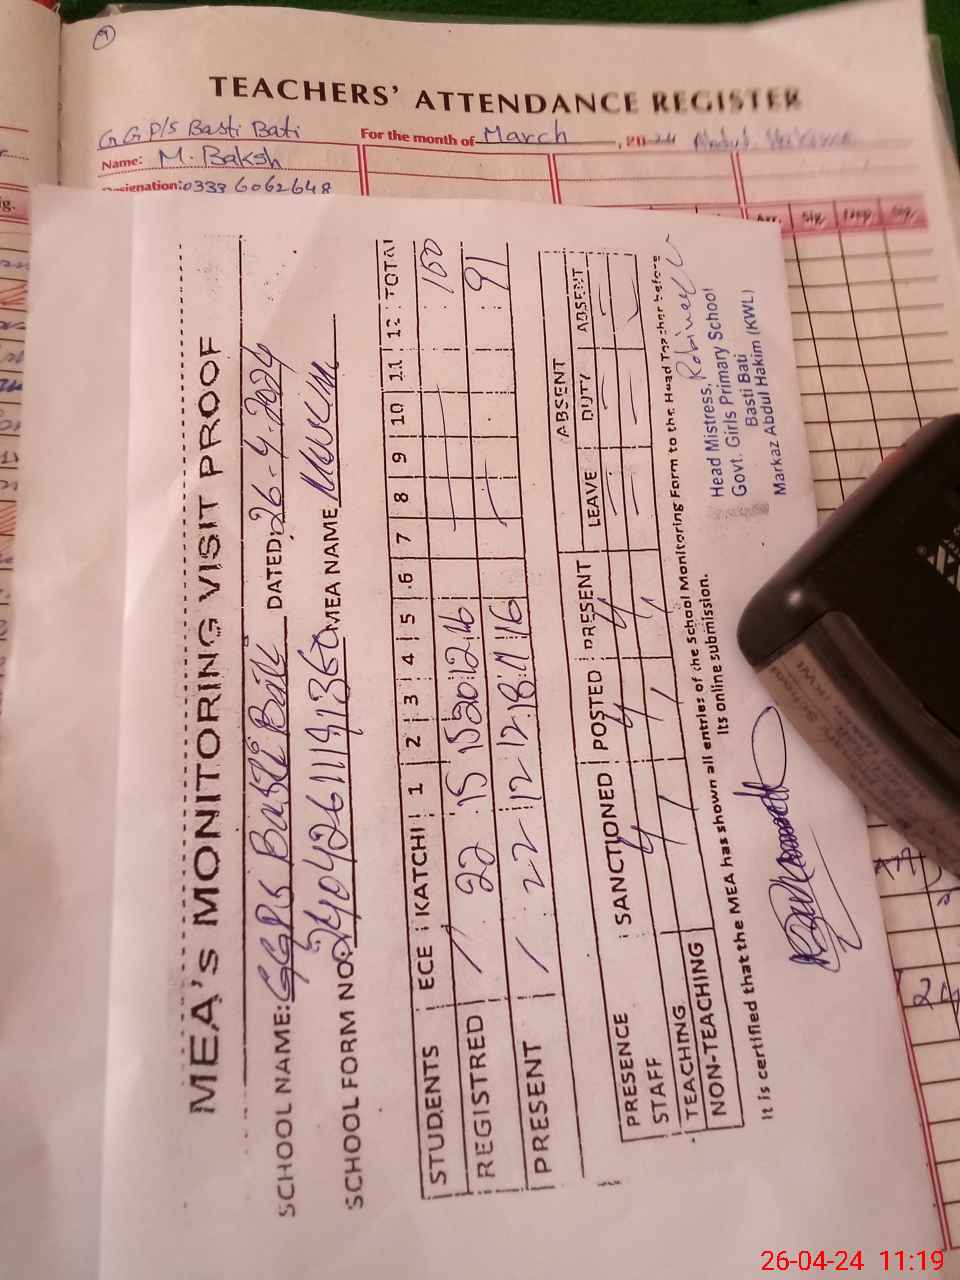 TEACHERS' ATTENDANCE REGISTER
GGP/S Basti Bati
For the month of March, 2024
Name: M. Baksh
Designation: 0333 6062648
Sig. Dep. Sig.
MEA's MONITORING VISIT PROOF
SCHOOL NAME: GGPS Basti Bati DATED: 26-4-2024
SCHOOL FORM NO: MEA NAME
STUDENTS ECE KATCHI 1 2 3 4 5 6 7 8 9 10 11 12 TOTAL
REGISTRED / 22 15 15 20 12 16 100
PRESENT / 22 12 12 18 11 16 91
ABSENT
PRESENCE SANCTIONED POSTED PRESENT LEAVE DUTY ABSENT
STAFF
TEACHING 4 4 4
NON-TEACHING 1 1 1
It is certified that the MEA has shown all entries of the School Monitoring Form to the Head Teacher before
Its online submission.
Head Mistress,
Govt. Girls Primary School
Basti Bati
Markaz Abdul Hakim (KWL)
26-04-24 11:19